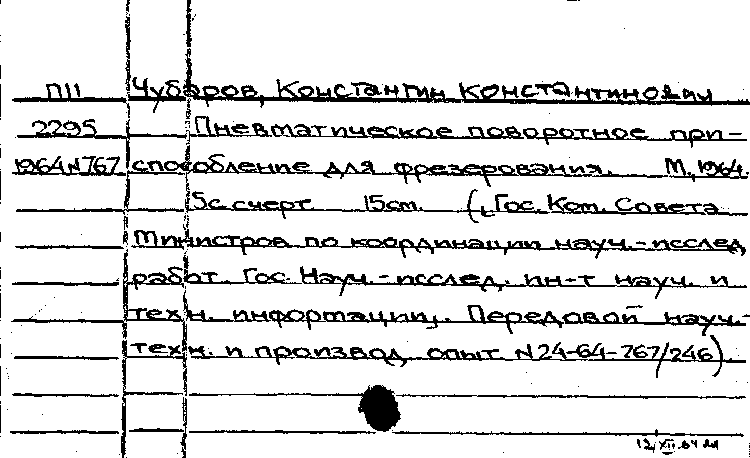 П11 Чубаров, Константин Константинович
2295 Пневматическое поворотное при-
1964N767 способление для фрезерования. М, 1964.
5с. с черт. 15см. (Гос. Ком. Совета
Министров по координации науч.-исслед.
работ. Гос. Науч.-исслед. ин-т науч. и
техн. информации. Передовой науч.-
техн. и производ. опыт N24-64-767/246).
12/XII.64